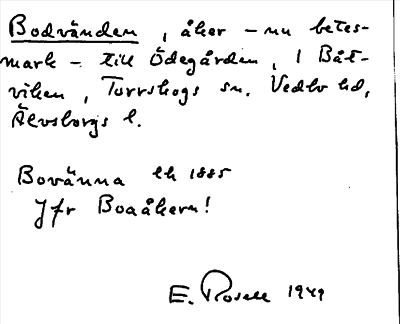 Bodvänden, åker – nu betes-
mark – till Ödegården, i Båt-
viken, Torrskogs sn. Vedbo hd,
Älvsborgs l.
Bovänna lh 1885
Jfr Boaåkern!
E. Rosell 1949